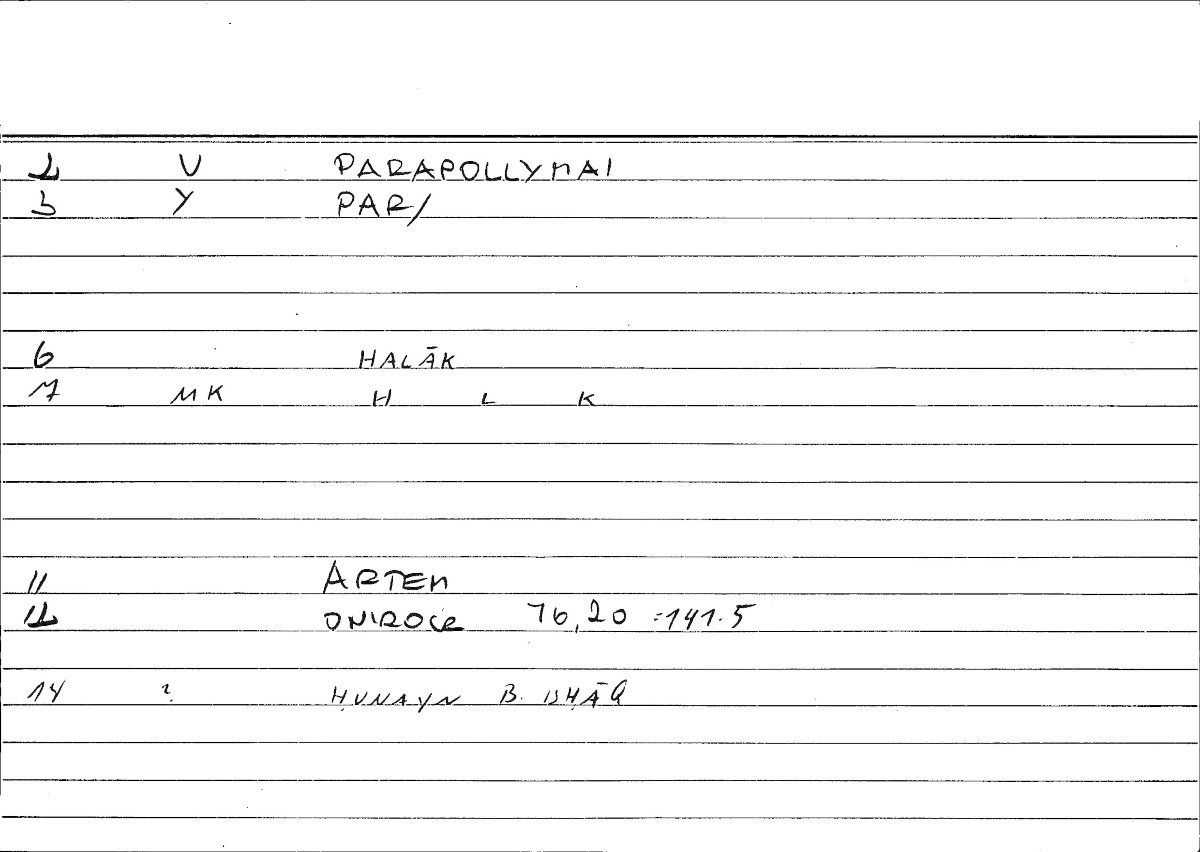 2 V PARAPOLLYMAI
3 Y PAR/
6 HALĀK
7 MK H L K
11 ARTEM
12 ONIROCR 76,20 =141.5
14 ? ḤUNAYN B. ISḤĀQ